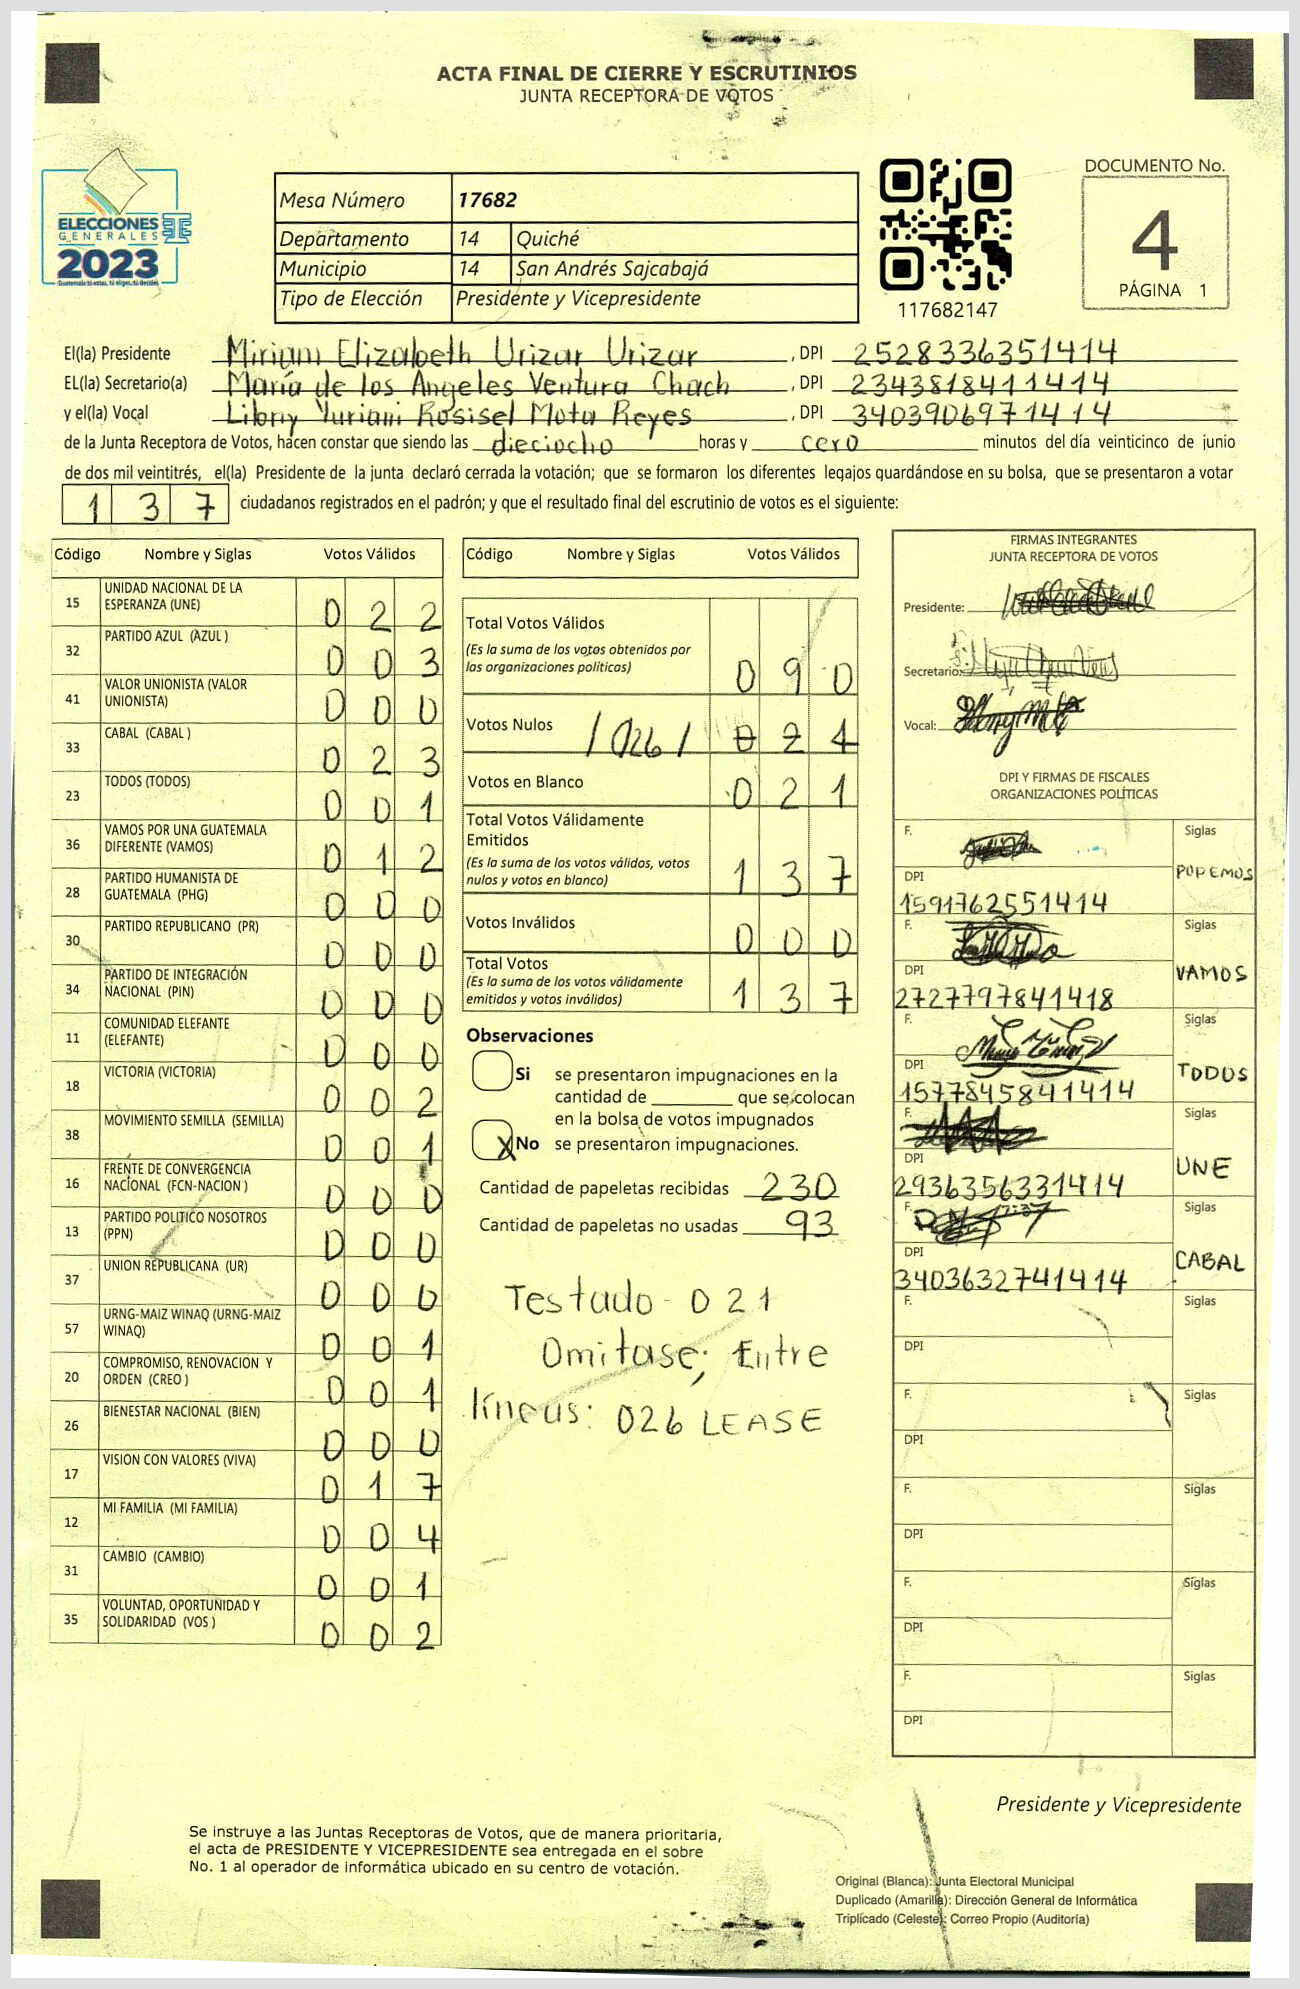 ACTA FINAL DE CIERRE Y ESCRUTINIOS
JUNTA RECEPTORA DE VOTOS
ELECCIONES
GENERALES
2023
Guatemala tú votas, tú eliges, tú decides
Mesa Número 17682
Departamento 14 Quiché
Municipio 14 San Andrés Sajcabajá
Tipo de Elección Presidente y Vicepresidente
117682147
DOCUMENTO No.
4
PÁGINA 1
El(la) Presidente Miriam Elizabeth Urizar Urizar , DPI 2528336351414
EL(la) Secretario(a) María de los Angeles Ventura Chach , DPI 2343818411414
y el(la) Vocal Libny Yuriani Rosisel Mota Reyes , DPI 3403906971414
de la Junta Receptora de Votos, hacen constar que siendo las dieciocho horas y cero minutos del día veinticinco de junio
de dos mil veintitrés, el(la) Presidente de la junta declaró cerrada la votación; que se formaron los diferentes legajos quardándose en su bolsa, que se presentaron a votar
137 ciudadanos registrados en el padrón; y que el resultado final del escrutinio de votos es el siguiente:
Código Nombre y Siglas Votos Válidos
15 UNIDAD NACIONAL DE LA ESPERANZA (UNE) 022
32 PARTIDO AZUL (AZUL ) 003
41 VALOR UNIONISTA (VALOR UNIONISTA) 000
33 CABAL (CABAL ) 023
23 TODOS (TODOS) 001
36 VAMOS POR UNA GUATEMALA DIFERENTE (VAMOS) 012
28 PARTIDO HUMANISTA DE GUATEMALA (PHG) 000
30 PARTIDO REPUBLICANO (PR) 000
34 PARTIDO DE INTEGRACIÓN NACIONAL (PIN) 000
11 COMUNIDAD ELEFANTE (ELEFANTE) 000
18 VICTORIA (VICTORIA) 002
38 MOVIMIENTO SEMILLA (SEMILLA) 001
16 FRENTE DE CONVERGENCIA NACIONAL (FCN-NACION ) 000
13 PARTIDO POLITICO NOSOTROS (PPN) 000
37 UNION REPUBLICANA (UR) 000
57 URNG-MAIZ WINAQ (URNG-MAIZ WINAQ) 001
20 COMPROMISO, RENOVACION Y ORDEN (CREO ) 001
26 BIENESTAR NACIONAL (BIEN) 000
17 VISION CON VALORES (VIVA) 017
12 MI FAMILIA (MI FAMILIA) 004
31 CAMBIO (CAMBIO) 001
35 VOLUNTAD, OPORTUNIDAD Y SOLIDARIDAD (VOS ) 002
Código Nombre y Siglas Votos Válidos
Total Votos Válidos 090
(Es la suma de los votos obtenidos por
las organizaciones políticas)
Votos Nulos /026/ 021
Votos en Blanco 021
Total Votos Válidamente
Emitidos 137
(Es la suma de los votos válidos, votos
nulos y votos en blanco)
Votos Inválidos 000
Total Votos 137
(Es la suma de los votos válidamente
emitidos y votos inválidos)
Observaciones
Si se presentaron impugnaciones en la
cantidad de ________ que se colocan
en la bolsa de votos impugnados
X No se presentaron impugnaciones.
Cantidad de papeletas recibidas 230
Cantidad de papeletas no usadas 93
Testado - 021
Omitase; Entre
líneas: 026 LEASE
FIRMAS INTEGRANTES
JUNTA RECEPTORA DE VOTOS
Presidente:
Secretario:
Vocal:
DPI Y FIRMAS DE FISCALES
ORGANIZACIONES POLÍTICAS
F. Siglas
DPI PODEMOS
1591762551414
F. Siglas
DPI VAMOS
2727797841418
F. Siglas
DPI TODOS
1577845841414
F. Siglas
DPI UNE
2936356331414
F. Siglas
DPI CABAL
3403632741414
F. Siglas
DPI
F. Siglas
DPI
F. Siglas
DPI
F. Siglas
DPI
F. Siglas
DPI
Presidente y Vicepresidente
Se instruye a las Juntas Receptoras de Votos, que de manera prioritaria,
el acta de PRESIDENTE Y VICEPRESIDENTE sea entregada en el sobre
No. 1 al operador de informática ubicado en su centro de votación.
Original (Blanca): Junta Electoral Municipal
Duplicado (Amarilla): Dirección General de Informática
Triplicado (Celeste): Correo Propio (Auditoría)